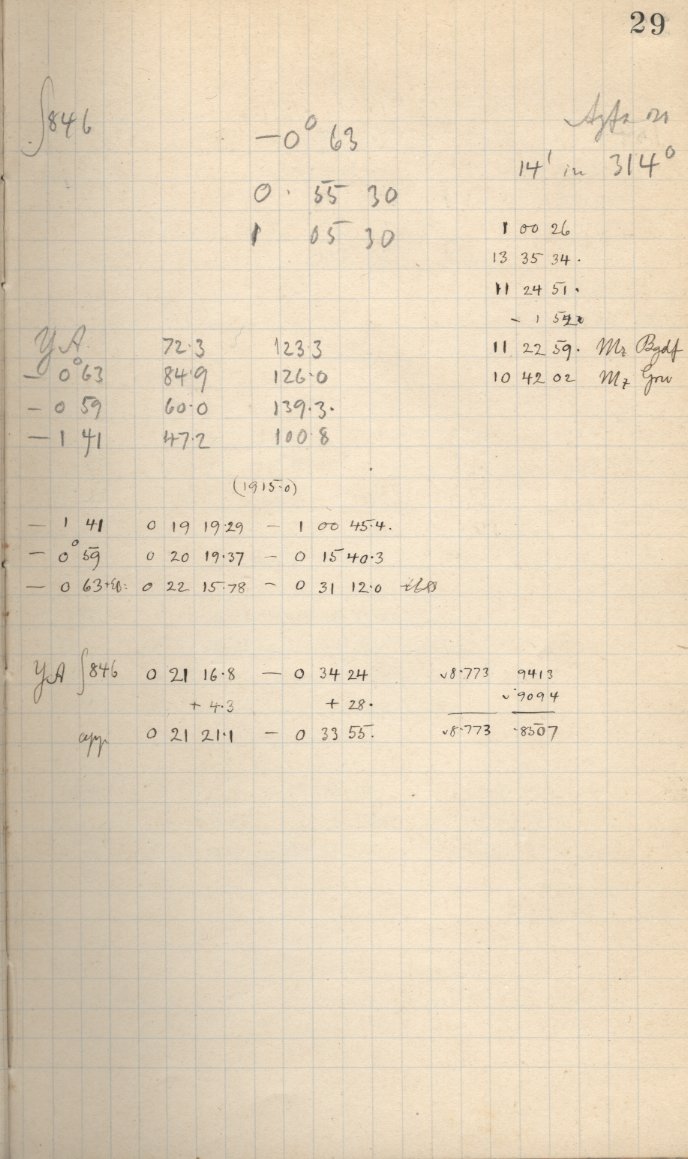 29
∫846
−0° 63
0 · 55 30
1 05 30
14' in 314°
1 00 26
13 35 34.
11 24 51.
− 1 52
11 22 59.
10 42 02
YA 72·3 123·3
− 0°63 84·9 126·0
− 0 59 60·0 139·3·
− 1 41 47·2 100·8
(1915·0)
− 1 41 0 19 19·29 − 1 00 45·4.
− 0°59 0 20 19·37 − 0 15 40·3
− 0 63 0 22 15·78 − 0 31 12·0
YA ∫846 0 21 16·8 − 0 34 24 8·773 9413
+ 4·3 + 28· 9094
app 0 21 21·1 − 0 33 55. 8·773 ·8507